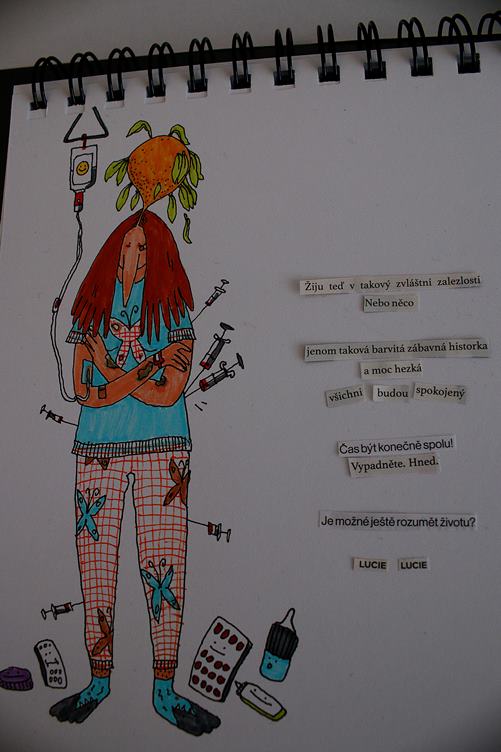 Žiju teď v takový zvláštní zalezlosti
Nebo něco
jenom taková barvitá zábavná historka
a moc hezká
všichni budou spokojený
Čas být konečně spolu!
Vypadněte. Hned.
Je možné ještě rozumět životu?
LUCIE LUCIE